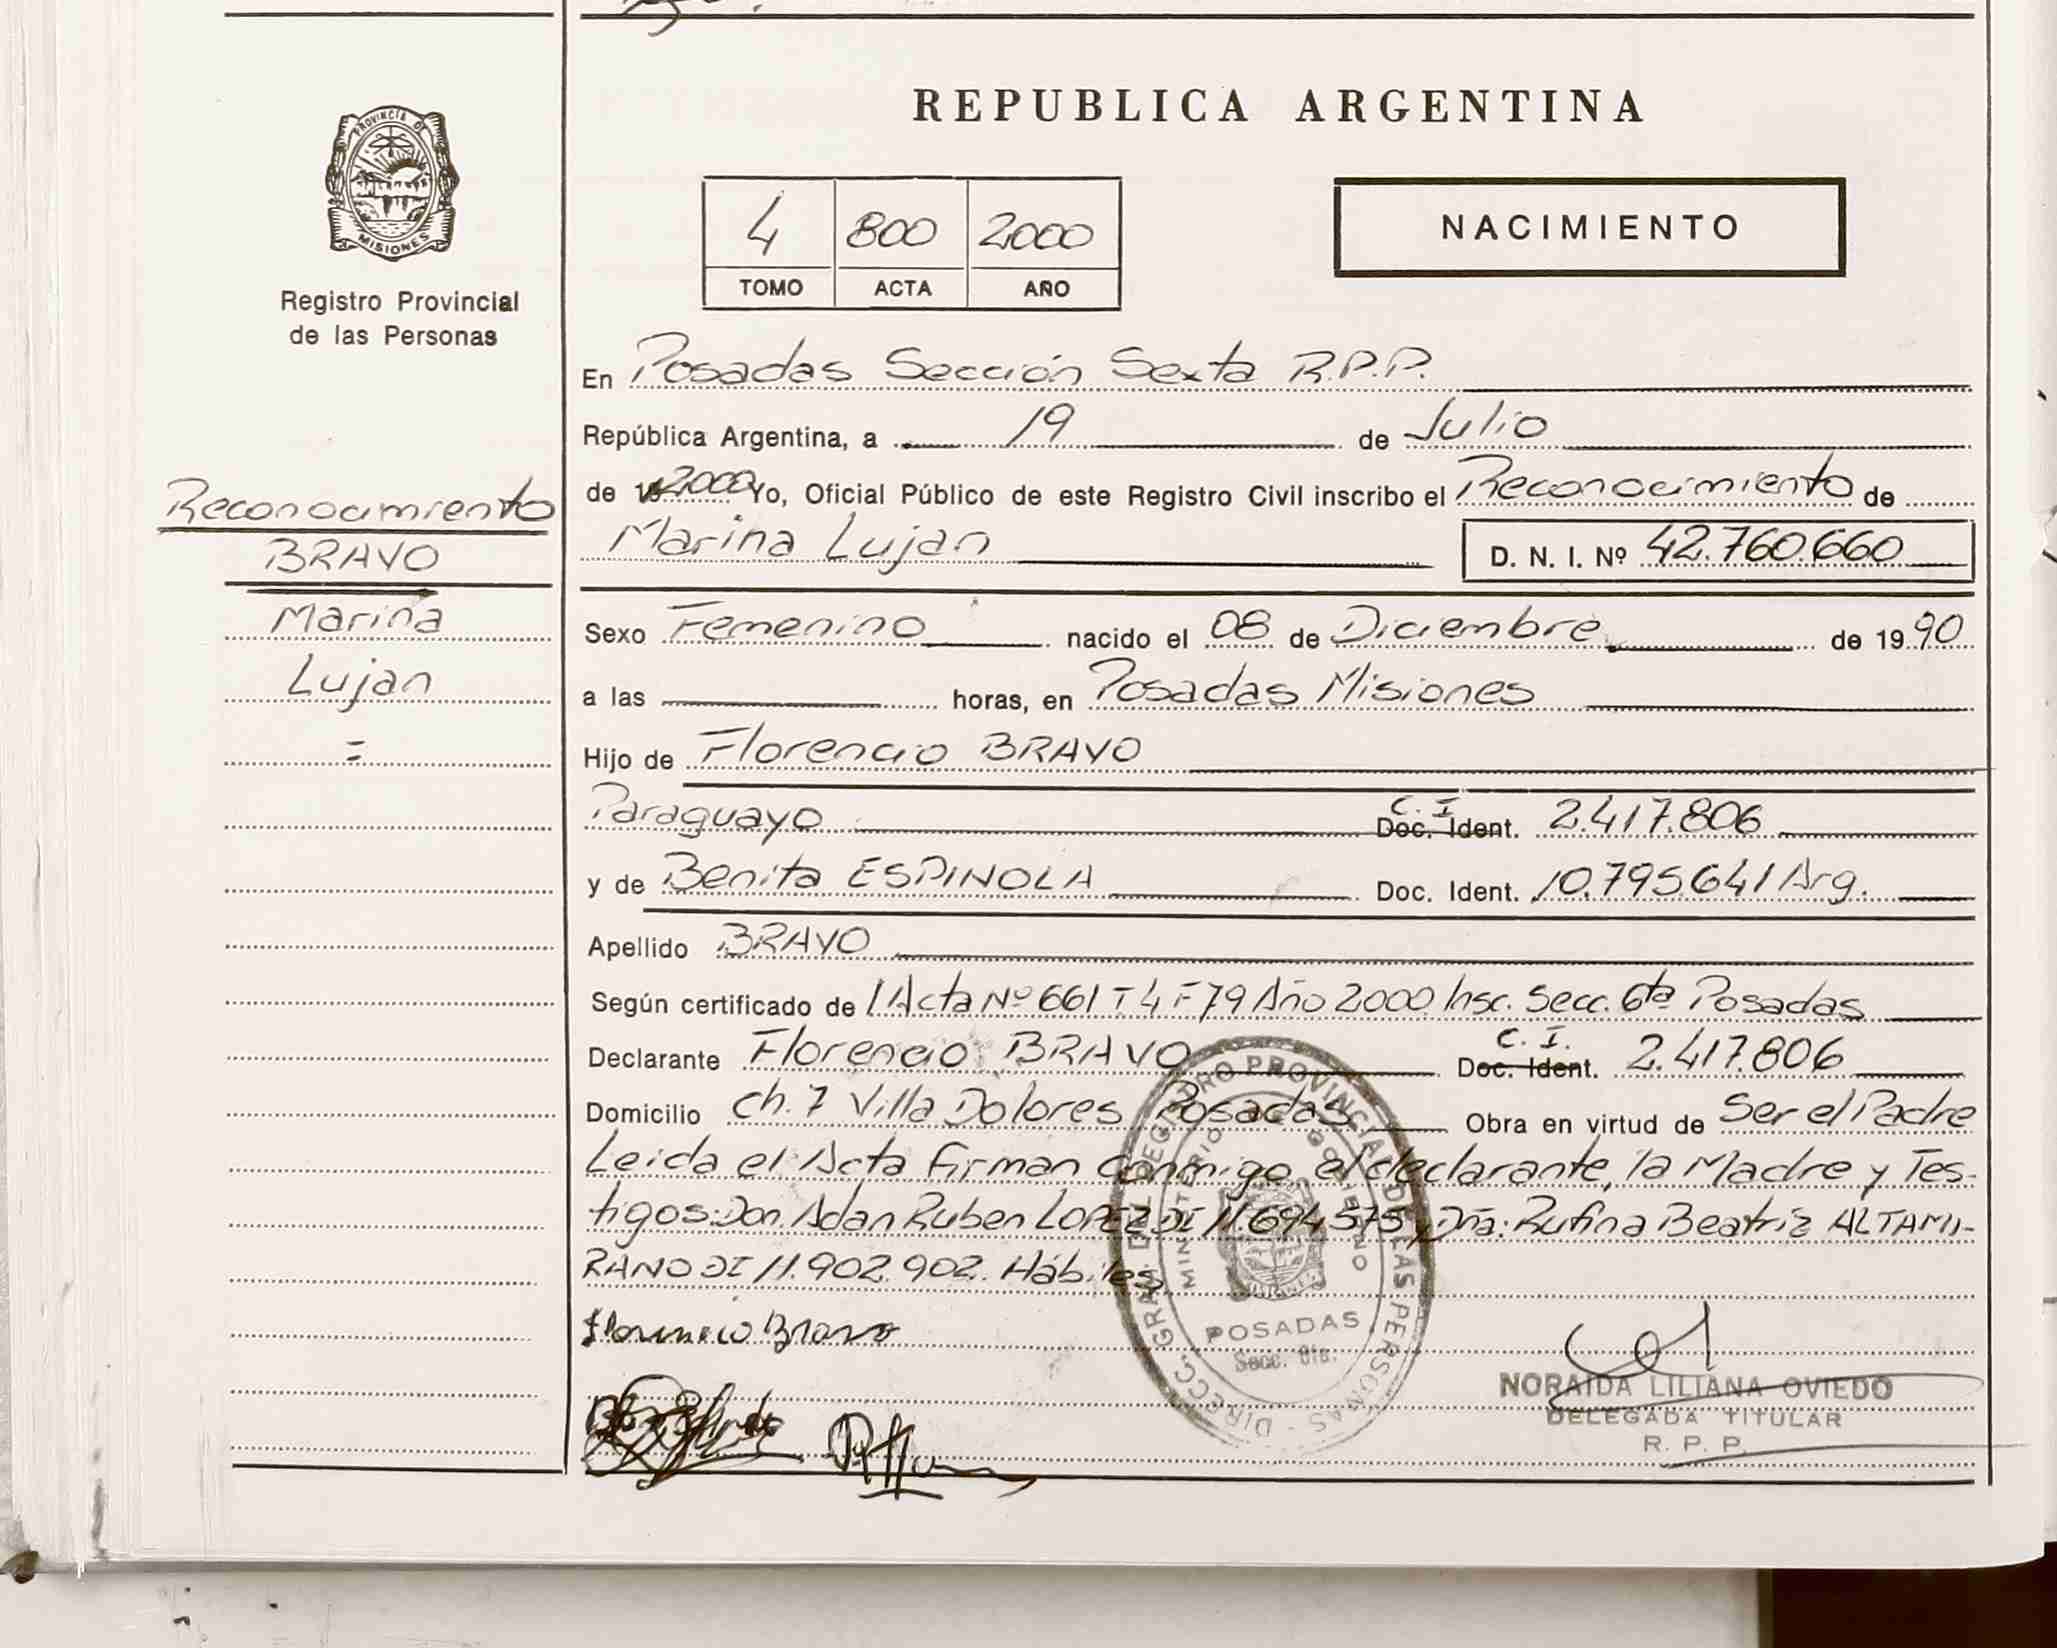 REPUBLICA ARGENTINA
PROVINCIA DE
MISIONES
Registro Provincial
de las Personas
4 800 2000
TOMO ACTA AÑO
NACIMIENTO
En Posadas Sección Sexta R.P.P.
República Argentina, a 19 de Julio
de 2000 Yo, Oficial Público de este Registro Civil inscribo el Reconocimiento de
Marina Lujan D. N. I. Nº 42.760.660
Reconocimiento
BRAVO
Marina
Lujan
=
Sexo Femenino nacido el 08 de Diciembre de 19 90
a las horas, en Posadas Misiones
Hijo de Florencio BRAVO
Paraguayo C.I. Doc. Ident. 2.417.806
y de Benita ESPINOLA Doc. Ident. 10.795.641 Arg.
Apellido BRAVO
Según certificado de Acta Nº 661 T 4 F 79 Año 2000 Insc. Secc. 6ta Posadas
Declarante Florencio BRAVO C.I. Doc. Ident. 2.417.806
Domicilio ch. 7 Villa Dolores Posadas Obra en virtud de Ser el Padre
Leida el Acta firman conmigo, el declarante, la Madre y Tes-
tigos: Don. Adan Ruben LOPEZ DI 11.694.575 y Dña: Rufina Beatriz ALTAMI-
RANO DI 11.902.902. Hábiles
Florencio Bravo
DIRECC. GRAL. DEL REGISTRO PROVINCIAL DE LAS PERSONAS
MINISTERIO DE GOBIERNO
POSADAS
Secc. 6ta.
NORAIDA LILIANA OVIEDO
DELEGADA TITULAR
R. P. P.